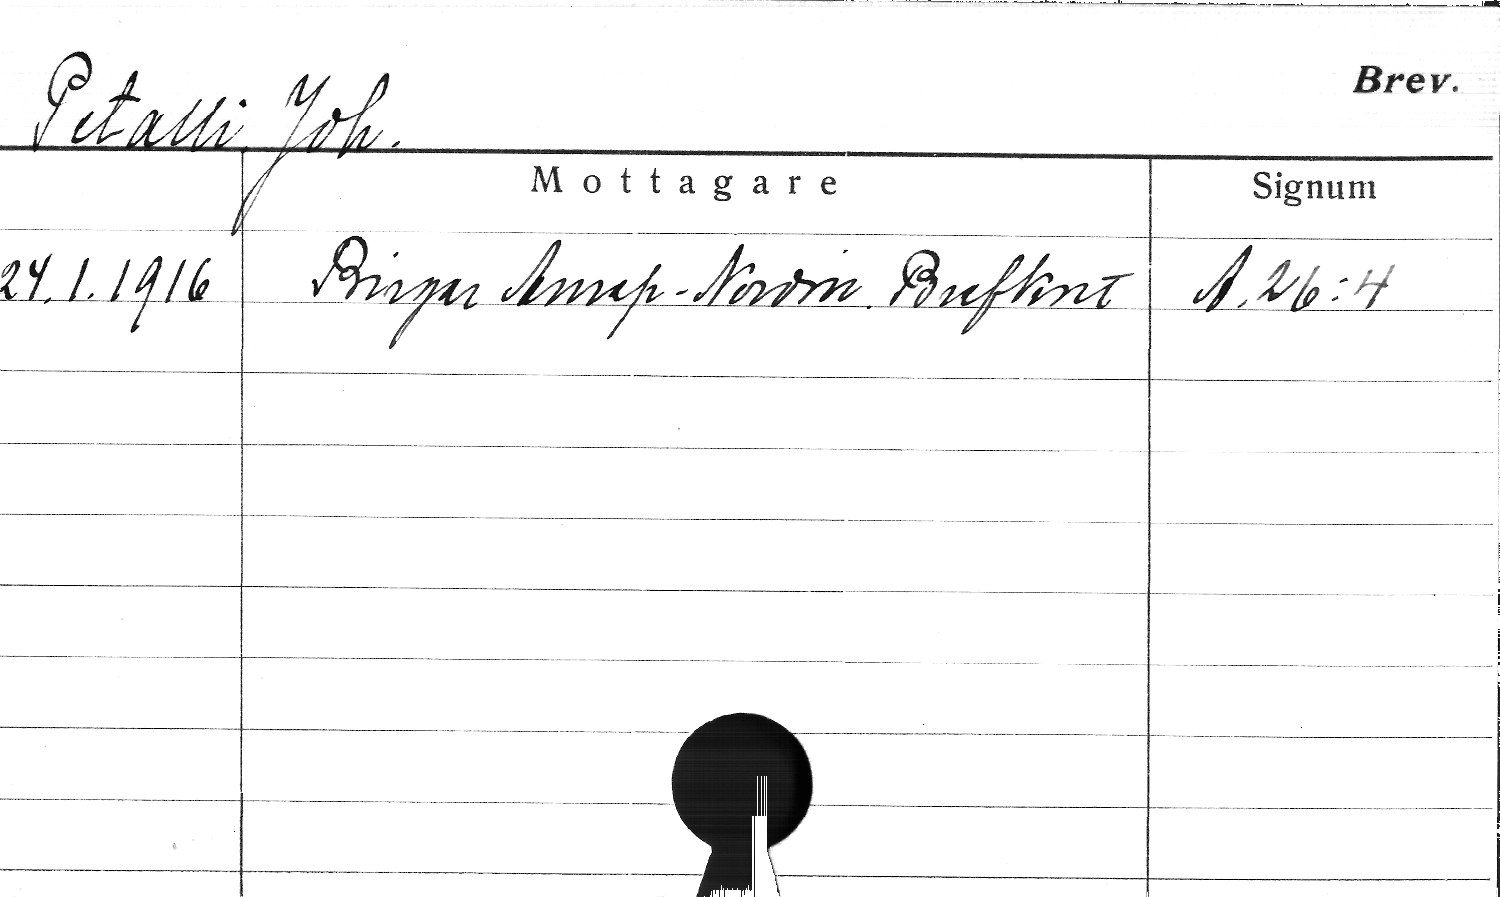 Petalli, Joh.
Brev.
Mottagare
Signum
24.1.1916 Birger Anrep-Nordin. Brefkort A.26:4